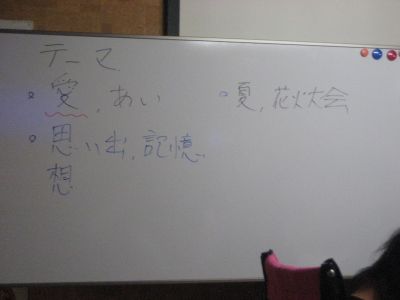 テーマ
愛,あい
思い出,記憶
想
夏,花火大会